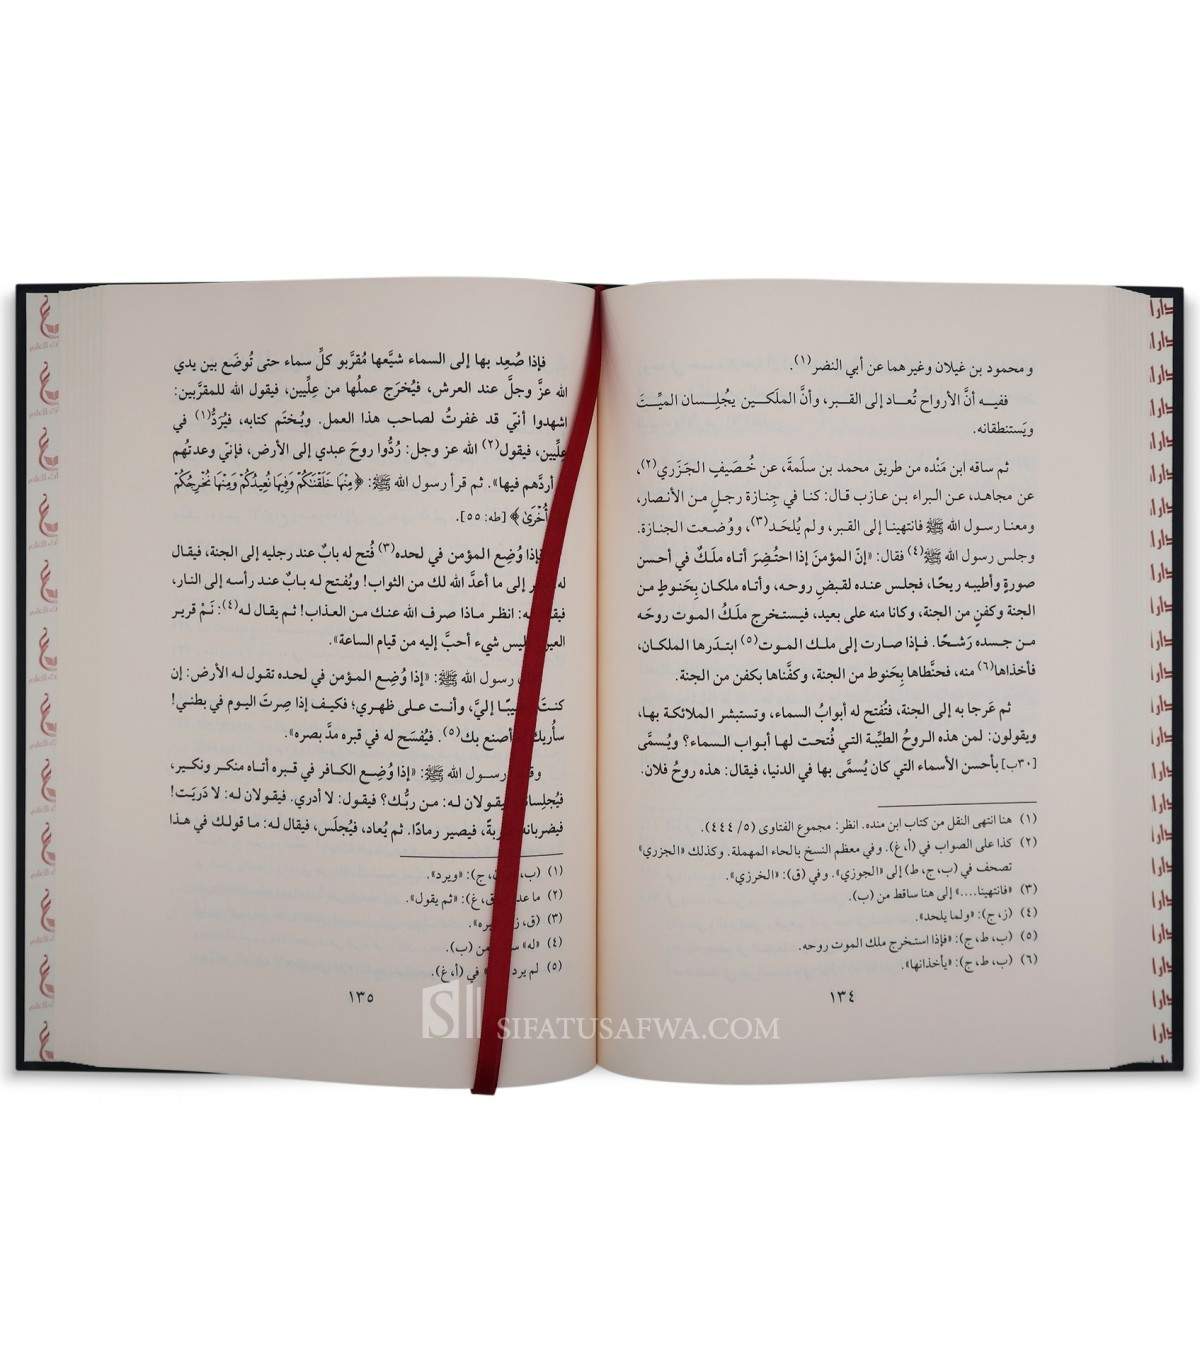 ومحمود بن غيلان وغيرهما عن أبي النضر(١).
ففيه أنَّ الأرواح تُعاد إلى القبر، وأنَّ الملَكين يجُلِسان الميِّتَ
ويَستنطقانه.
ثم ساقه ابن مَنْده من طريق محمد بن سلَمةَ، عن خُصَيفٍ الجَزَري(٢)،
عن مجاهد، عن البراء بن عازب قال: كنا في جِنازة رجلٍ من الأنصار،
ومعنا رسول الله ﷺ فانتهينا إلى القبر، ولم يُلحَد(٣)، ووُضعت الجنازة.
وجلس رسول الله ﷺ(٤) فقال: «إنّ المؤمنَ إذا احتُضِرَ أتاه ملَكٌ في أحسن
صورةٍ وأطيبه ريحًا، فجلس عنده لقبضِ روحه، وأتاه ملكان بِحَنوطٍ من
الجنة وكفنٍ من الجنة، وكانا منه على بعيد، فيستخرج ملَكُ الموت روحَه
من جسده رَشحًا. فإذا صارت إلى ملك الموت(٥) ابتدَرها الملكان،
فأخذاها(٦) منه، فحنَّطاها بِحَنوط من الجنة، وكفَّناها بكفن من الجنة.
ثم عَرجا به إلى الجنة، فتُفتح له أبوابُ السماء، وتستبشر الملائكة بها،
ويقولون: لمن هذه الروحُ الطيِّبة التي فُتحت لها أبواب السماء؟ ويُسمَّى
[٣٠ب] بأحسن الأسماء التي كان يُسمَّى بها في الدنيا، فيقال: هذه روحُ فلان.
(١) هنا انتهى النقل من كتاب ابن منده. انظر: مجموع الفتاوى (٥/ ٤٤٤).
(٢) كذا على الصواب في (أ، غ). وفي معظم النسخ بالحاء المهملة. وكذلك «الجزري»
تصحف في (ب، ج، ط) إلى «الجوزي». وفي (ق): «الخرزي».
(٣) «فانتهينا....» إلى هنا ساقط من (ب).
(٤) (ز، ج): «ولما يلحد».
(٥) (ب، ط، ج): «فإذا استخرج ملك الموت روحه.
(٦) (ب، ط، ج): «يأخذانها».
١٣٤
فإذا صُعِد بها إلى السماء شيَّعها مُقرَّبو كلِّ سماء حتى تُوضَع بين يدي
الله عزَّ وجلَّ عند العرش، فيُخرَج عملُها من عِلِّيين، فيقول الله للمقرَّبين:
اشهدوا أنّي قد غفرتُ لصاحب هذا العمل. ويُختَم كتابه، فيُرَدُّ(١) في
عِلِّيين، فيقول(٢) الله عز وجل: رُدُّوا روحَ عبدي إلى الأرض، فإنّي وعدتُهم
أردَّهم فيها». ثم قرأ رسول الله ﷺ: ﴿مِنْهَا خَلَقْنَٰكُمْ وَفِيهَا نُعِيدُكُمْ وَمِنْهَا نُخْرِجُكُمْ
أُخْرَىٰ﴾ [طه: ٥٥].
فإذا وُضِع المؤمن في لحده(٣) فُتح له بابٌ عند رجليه إلى الجنة، فيقال
له إلى ما أعدَّ الله لك من الثواب! ويُفتح له بابٌ عند رأسه إلى النار،
انظر ماذا صرف الله عنك من العذاب! ثم يقال له(٤): نَمْ قرير
العين ليس شيء أحبَّ إليه من قيام الساعة».
رسول الله ﷺ: «إذا وُضِع المؤمن في لحده تقول له الأرض: إن
كنتَ إليَّ، وأنت على ظهري؛ فكيف إذا صِرتَ اليوم في بطني!
سأُريك أصنع بك(٥). فيُفسَح له في قبره مدَّ بصره».
رسول الله ﷺ: «إذا وُضِع الكافر في قبره أتاه منكر ونكير،
فيقولان له: من ربُّك؟ فيقول: لا أدري. فيقولان له: لا دَرَيت!
فيضربانه فيصير رمادًا. ثم يُعاد، فيُجلَس، فيقال له: ما قولك في هذا
(١) ج): «ويرد».
(٢) غ): «ثم يقول».
(٣) (ق،
(٤) «له» من (ب).
(٥) لم يرد في (أ، غ).
١٣٥
SIFATUSAFWA.COM